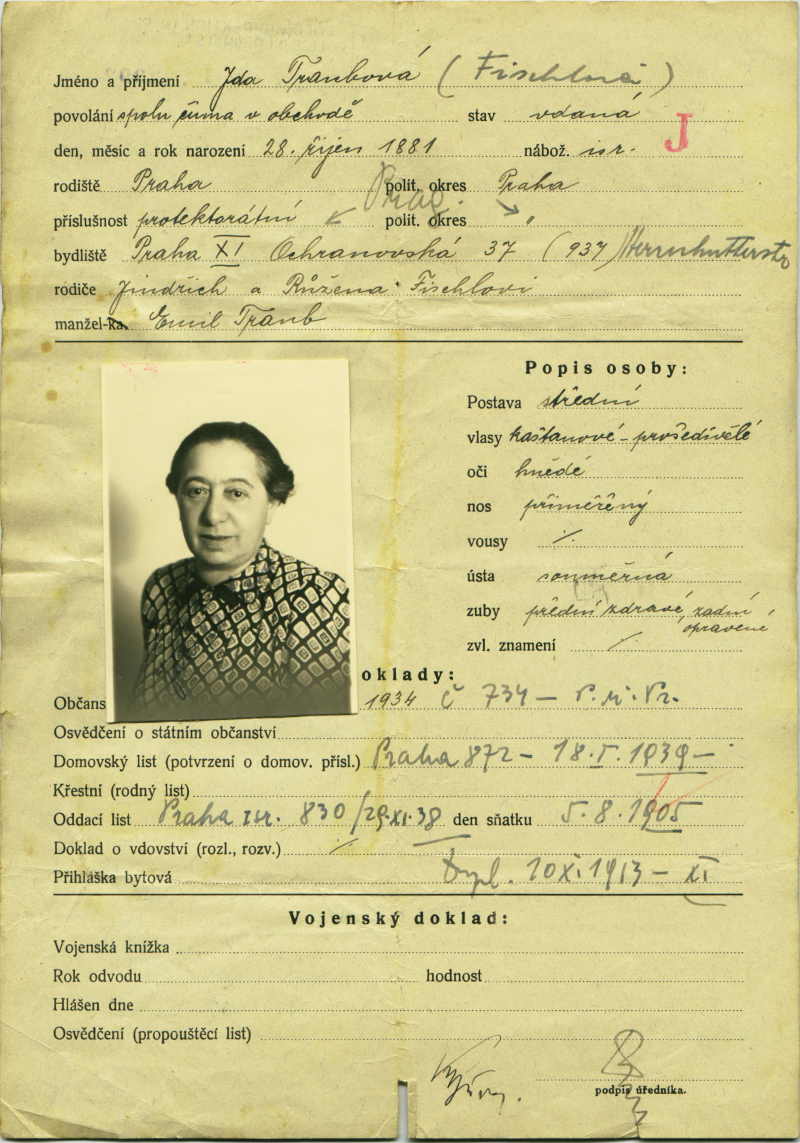 Jméno a příjmení Ida Traubová (Fischlová)
povolání spolu činna v obchodě stav vdaná
J
den, měsíc a rok narození 28. říjen 1881 nábož. isr.
rodiště Praha polit. okres Praha
příslušnost protektorátní Praha polit. okres "
bydliště Praha XI Ochranovská 37 (937) Herrnhutterstr
rodiče Jindřich a Růžena Fischlovi
manžel-ka Emil Traub
Popis osoby:
Postava střední
vlasy kaštanové - prošedivělé
oči hnědé
nos přiměřený
vousy /
ústa souměrná
zuby přední zdravé, zadní opravené
zvl. znamení /
oklady:
Občans 1934 č 734 –
Osvědčení o státním občanství
Domovský list (potvrzení o domov. přísl.) Praha 872 – 18.I.1939 –
Křestní (rodný list)
Oddací list Praha isr. 830/29.XI.38 den sňatku 5.8.1905
Doklad o vdovství (rozl., rozv.) /
Přihláška bytová 10 XI 1913 – XI
Vojenský doklad:
Vojenská knížka
Rok odvodu hodnost
Hlášen dne
Osvědčení (propouštěcí list)
podpis úředníka.